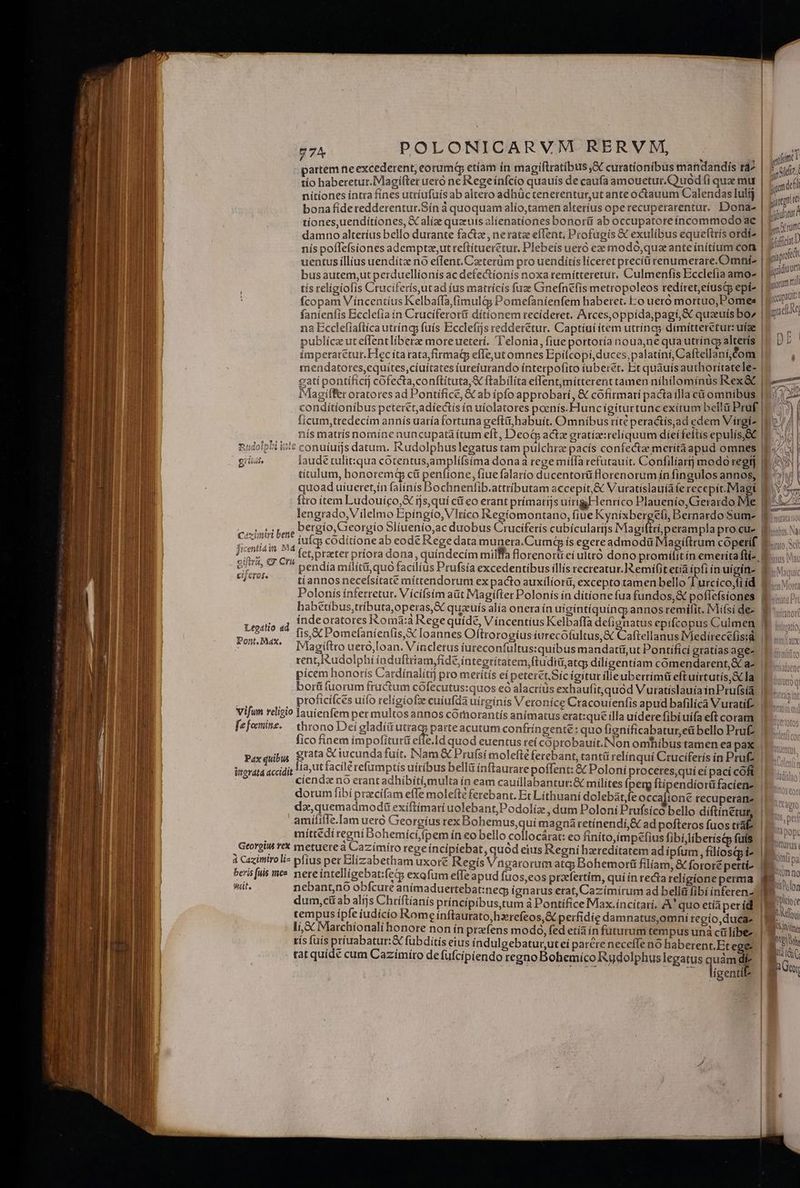 574 POLONICARVM RERVM,
partem ne excederent, eorumq́; etiam in magistratibus, & curationibus mandandis ra⸗
tio haberetur. Magister uero ne Rege inscio quauis de causa amouetur. Quod si quæ mu
nitiones intra fines utriusuis ab altero adhuc tenerentur, ut ante octauum Calendas Iulij
bona fide redderentur. Sin à quoquam alio, tamen alterius ope recuperarentur. Dona⸗
tiones, uenditiones, & aliæ quæuis alienationes bonorũ ab occupatore incommodo ac
damno alterius bello durante factæ, ne ratæ essent. Profugis & exulibus equestris ordi⸗
nis possessiones ademptæ, ut restituerẽtur. Plebeis uero eæ modò, quæ ante initium con
uentus illius uenditæ nõ essent. Cæterùm pro uenditis liceret preciũ renumerare. Omni⸗
bus autem, ut perduellionis ac defectionis noxa remitteretur. Culmensis Ecclesia amo⸗
tis religiosis Cruciferis, ut ad ius matricis suæ Gnesnẽsis metropoleos rediret, eiusq́; epi⸗
scopam Vincentius Kelbassa, simulq́; Pomesaniensem haberet. Eo uero mortuo, Pomes
saniensis Ecclesia in Cruciferorũ ditionem recideret. Arces, oppida, pagi, & quæuis bo⸗
na Ecclesiastica utrinq; suis Ecclesijs redderẽtur. Captiui item utrinq; dimitterẽtur: uiæ
publicæ ut essent liberæ more ueteri. Telonia, siue portoria noua, ne qua utrinq; alteris
imperarẽtur. Hęc ita rata, firmaq́; esse, ut omnes Episcopi, duces, palatini, Castellani, com
mendatores, equites, ciuitates iureiurando interposito iuberẽt. Et quãuis authoritate le⸗
gati pontificij cõfecta, constituta, & stabilita essent, mitterent tamen nihilominùs Rex &
Magister oratores ad Pontificẽ, & ab ipso approbari, & cõfirmari pacta illa cũ omnibus
conditionibus peterẽt, adiectis in uiolatores pœnis. Hunc igitur tunc exitum bellũ Pruss
sicum, tredecim annis uaria fortuna gestũ, habuit. Omnibus ritè peractis, ad ędem Virgi⸗
nis matris nomine nuncupatã itum est, Deoq́; actæ gratiæ: reliquum diei festis epulis, &
Rudolphi inte conuiuijs datum. Rudolphus legatus tam pulchræ pacis confectæ meritã apud omnes
gritas. laudẽ tulit: qua cõtentus, amplissima dona à rege missa refutauit. Consiliarij modò regij
titulum, honoremq́; cũ pensione, siue salario ducentorũ florenorum in singulos annos,
quoad uiueret, in salinis Bochnensib. attributam accepit, & Vuratislauiã se recepit. Magi
stro item Ludouico, & ijs, qui cũ eo erant primarijs uiris, Henrico Plauenio, Gerardo Me
lengrado, Vilelmo Epingio, Vlrico Regiomontano, siue Kynixbergẽsi, Bernardo Sum⸗
Cazimiri bene bergio, Georgio Sliuenio, ac duobus Cruciferis cubicularijs Magistri, perampla pro cu⸗
ficentia in Ma iusq; cõditione ab eodẽ Rege data munera. Cumq́; is egere admodũ Magistrum cõperis
gistrũ, & Cru set, præter priora dona, quindecim millia florenorũ ei ultrò dono promisit in emerita sti⸗
ciferos. pendia militũ, quò faciliùs Prussia excedentibus illis recreatur. Remisit etiã ipsi in uigin⸗
ti annos necessitatẽ mittendorum ex pacto auxiliorũ, excepto tamen bello Turcico, si id
Polonis inferretur. Vicissim aũt Magister Polonis in ditione sua fundos, & possessiones
habẽtibus, tributa, operas, & quæuis alia onera in uigintiquinq; annos remisit. Missi de⸗
Legatio ad inde oratores Romã: à Rege quidẽ, Vincentius Kelbassa designatus episcopus Culmen
Pont. Max. sis, & Pomesaniensis, & Ioannes Ostrorogius iurecõsultus, & Castellanus Medirecẽsis: à
Magistro uerò, Ioan. Vincletus iureconsultus: quibus mandatũ, ut Pontifici gratias age⸗
rent, Rudolphi industriam, fidẽ, integritatem, studiũ, atq; diligentiam cõmendarent, & a⸗
picem honoris Cardinalitij pro meritis ei peterẽt. Sic igitur ille uberrimũ est uirtutis, & la
borũ suorum fructum cõsecutus: quos eò alacriùs exhausit, quòd Vuratislauia in Prussiã
proficiscẽs uiso religiosæ cuiusdã uirginis Veronicę Cracouiensis apud basilicã Vuratis⸗
Visum religio lauiensem per multos annos cõmorantis animatus erat: quę illa uidere sibi uisa est coram
sæ fœminæ. throno Dei gladiũ utraq; parte acutum confringentẽ: quo significabatur, eũ bello Prus⸗
sico finem impositurũ esse. Id quod euentus rei cõprobauit. Non omnibus tamen ea pax
Pax quibus grata & iucunda fuit. Nam & Prussi molestè ferebant, tantũ relinqui Cruciferis in Prus⸗
ingrata accidit sia, ut facilè resumptis uiribus bellũ instaurare possent: & Poloni proceres, qui ei paci cõfi
ciendæ nõ erant adhibiti, multa in eam cauillabantur: & milites spem stipendiorũ facien⸗
dorum sibi præcisam esse molestè ferebant. Et Lithuani dolebãt, se occasionẽ recuperan⸗
dæ, quemadmodũ existimari uolebant, Podoliæ, dum Poloni Prussico bello distinẽtur,
amisisse. Iam uerò Georgius rex Bohemus, qui magnã retinendi, & ad posteros suos trãs⸗
mittẽdi regni Bohemici, spem in eo bello collocârat: eo finito, impẽsius sibi, liberisq́; suis
Georgius rex metuere à Cazimiro rege incipiebat, quòd eius Regni hæreditatem ad ipsum, filiosq́; i⸗
à Cazimiro li⸗ psius per Elizabetham uxorẽ Regis Vngarorum atq; Bohemorũ filiam, & sororẽ perti⸗
beris suis me⸗ nere intelligebat: seq́; exosum esse apud suos, eos præsertim, qui in recta religione perma
tuit. nebant, nõ obscurè animaduertebat: neq; ignarus erat, Cazimirum ad bellũ sibi inferen⸗
dum, cũ ab alijs Christianis principibus, tum à Pontifice Max. incitari. A' quo etiã per id
tempus ipse iudicio Romę instaurato, hærefeos, & perfidię damnatus, omni regio, duca⸗
li, & Marchionali honore non in præsens modò, sed etiã in futurum tempus unà cũ libe⸗
ris suis priuabatur: & subditis eius indulgebatur, ut ei parêre necesse nõ haberent. Et ege⸗
rat quidẽ cum Cazimiro de suscipiendo regno Bohemico Rudolphus legatus quàm di⸗
ligentis⸗